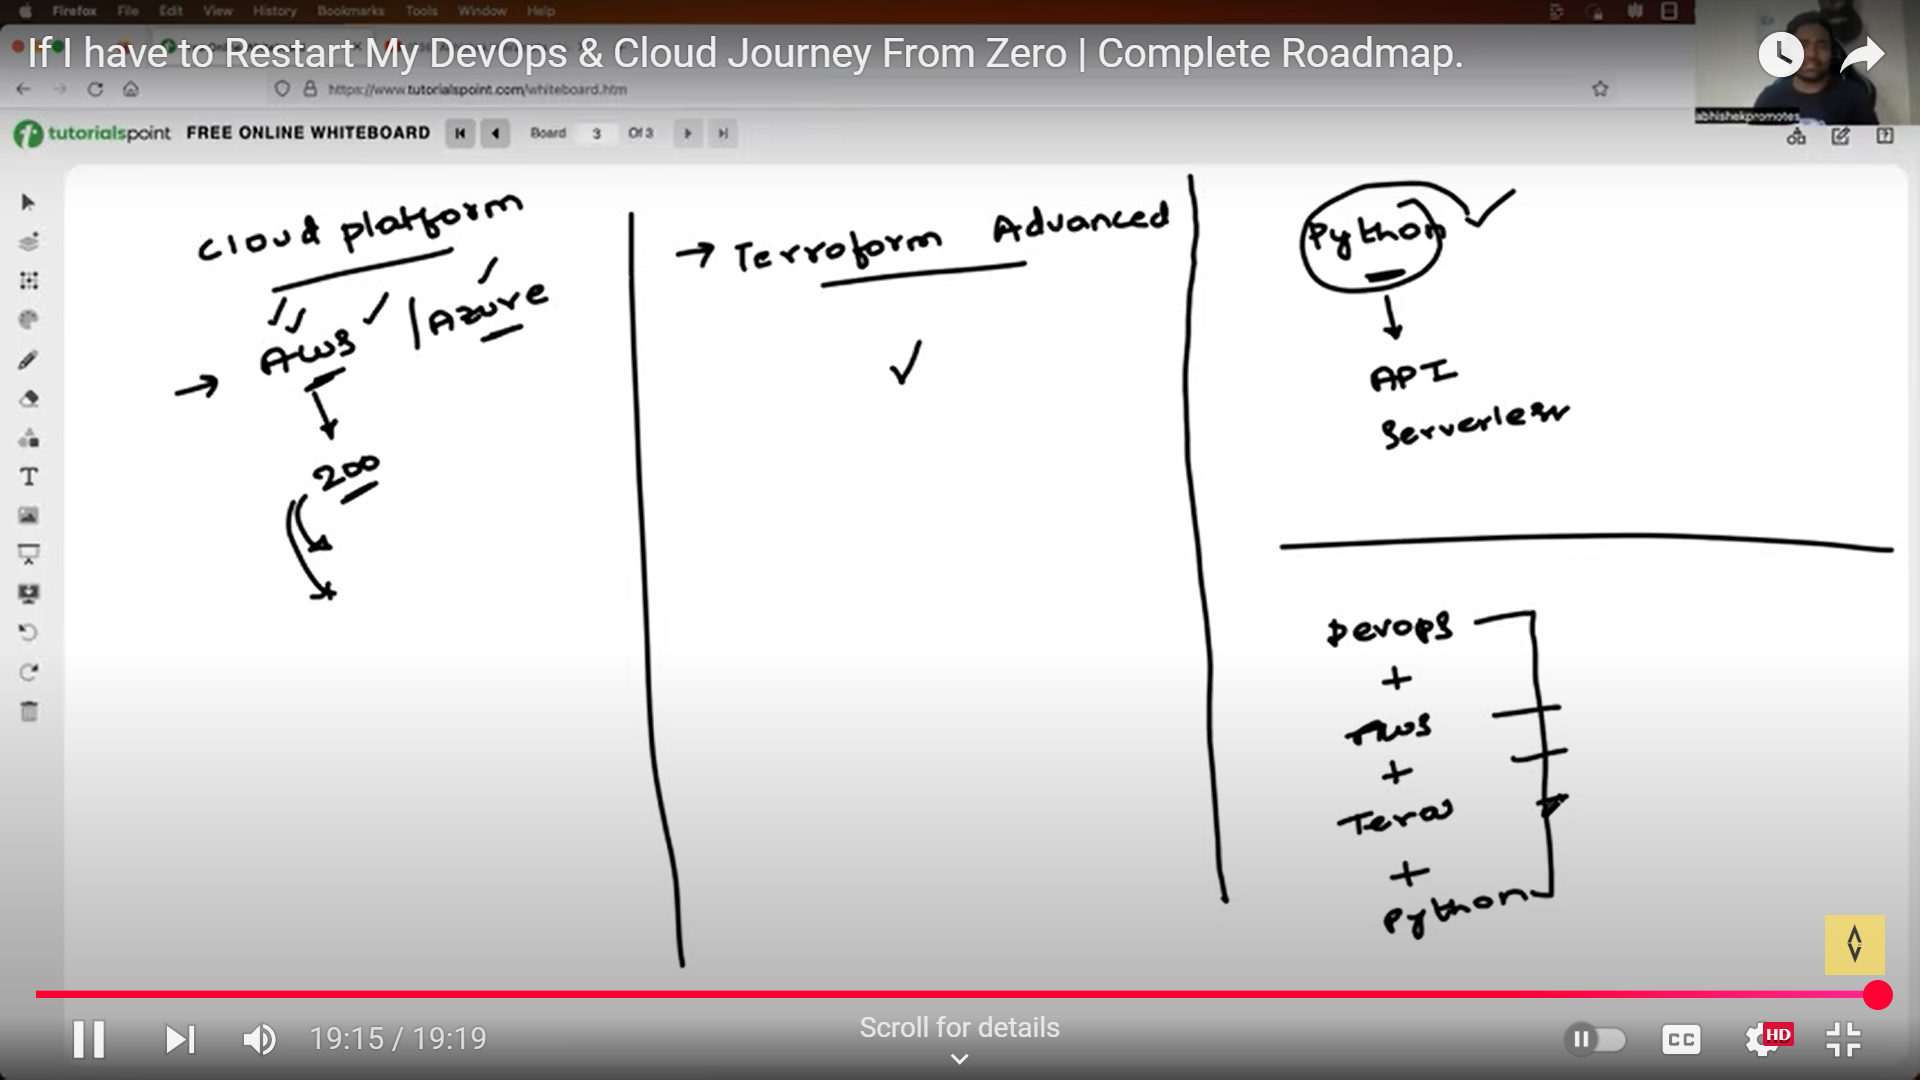 Firefox File Edit View History Bookmarks Tools Window Help
If I have to Restart My DevOps & Cloud Journey From Zero | Complete Roadmap.
https://www.tutorialspoint.com/whiteboard.htm
abhishekpromotes
tutorialspoint FREE ONLINE WHITEBOARD Board 3 Of 3
cloud platform
AWS / Azure
200
Terroform Advanced
Python
API
Serverless
Devops
+
AWS
+
Tera
+
Python
19:15 / 19:19
Scroll for details
CC
HD